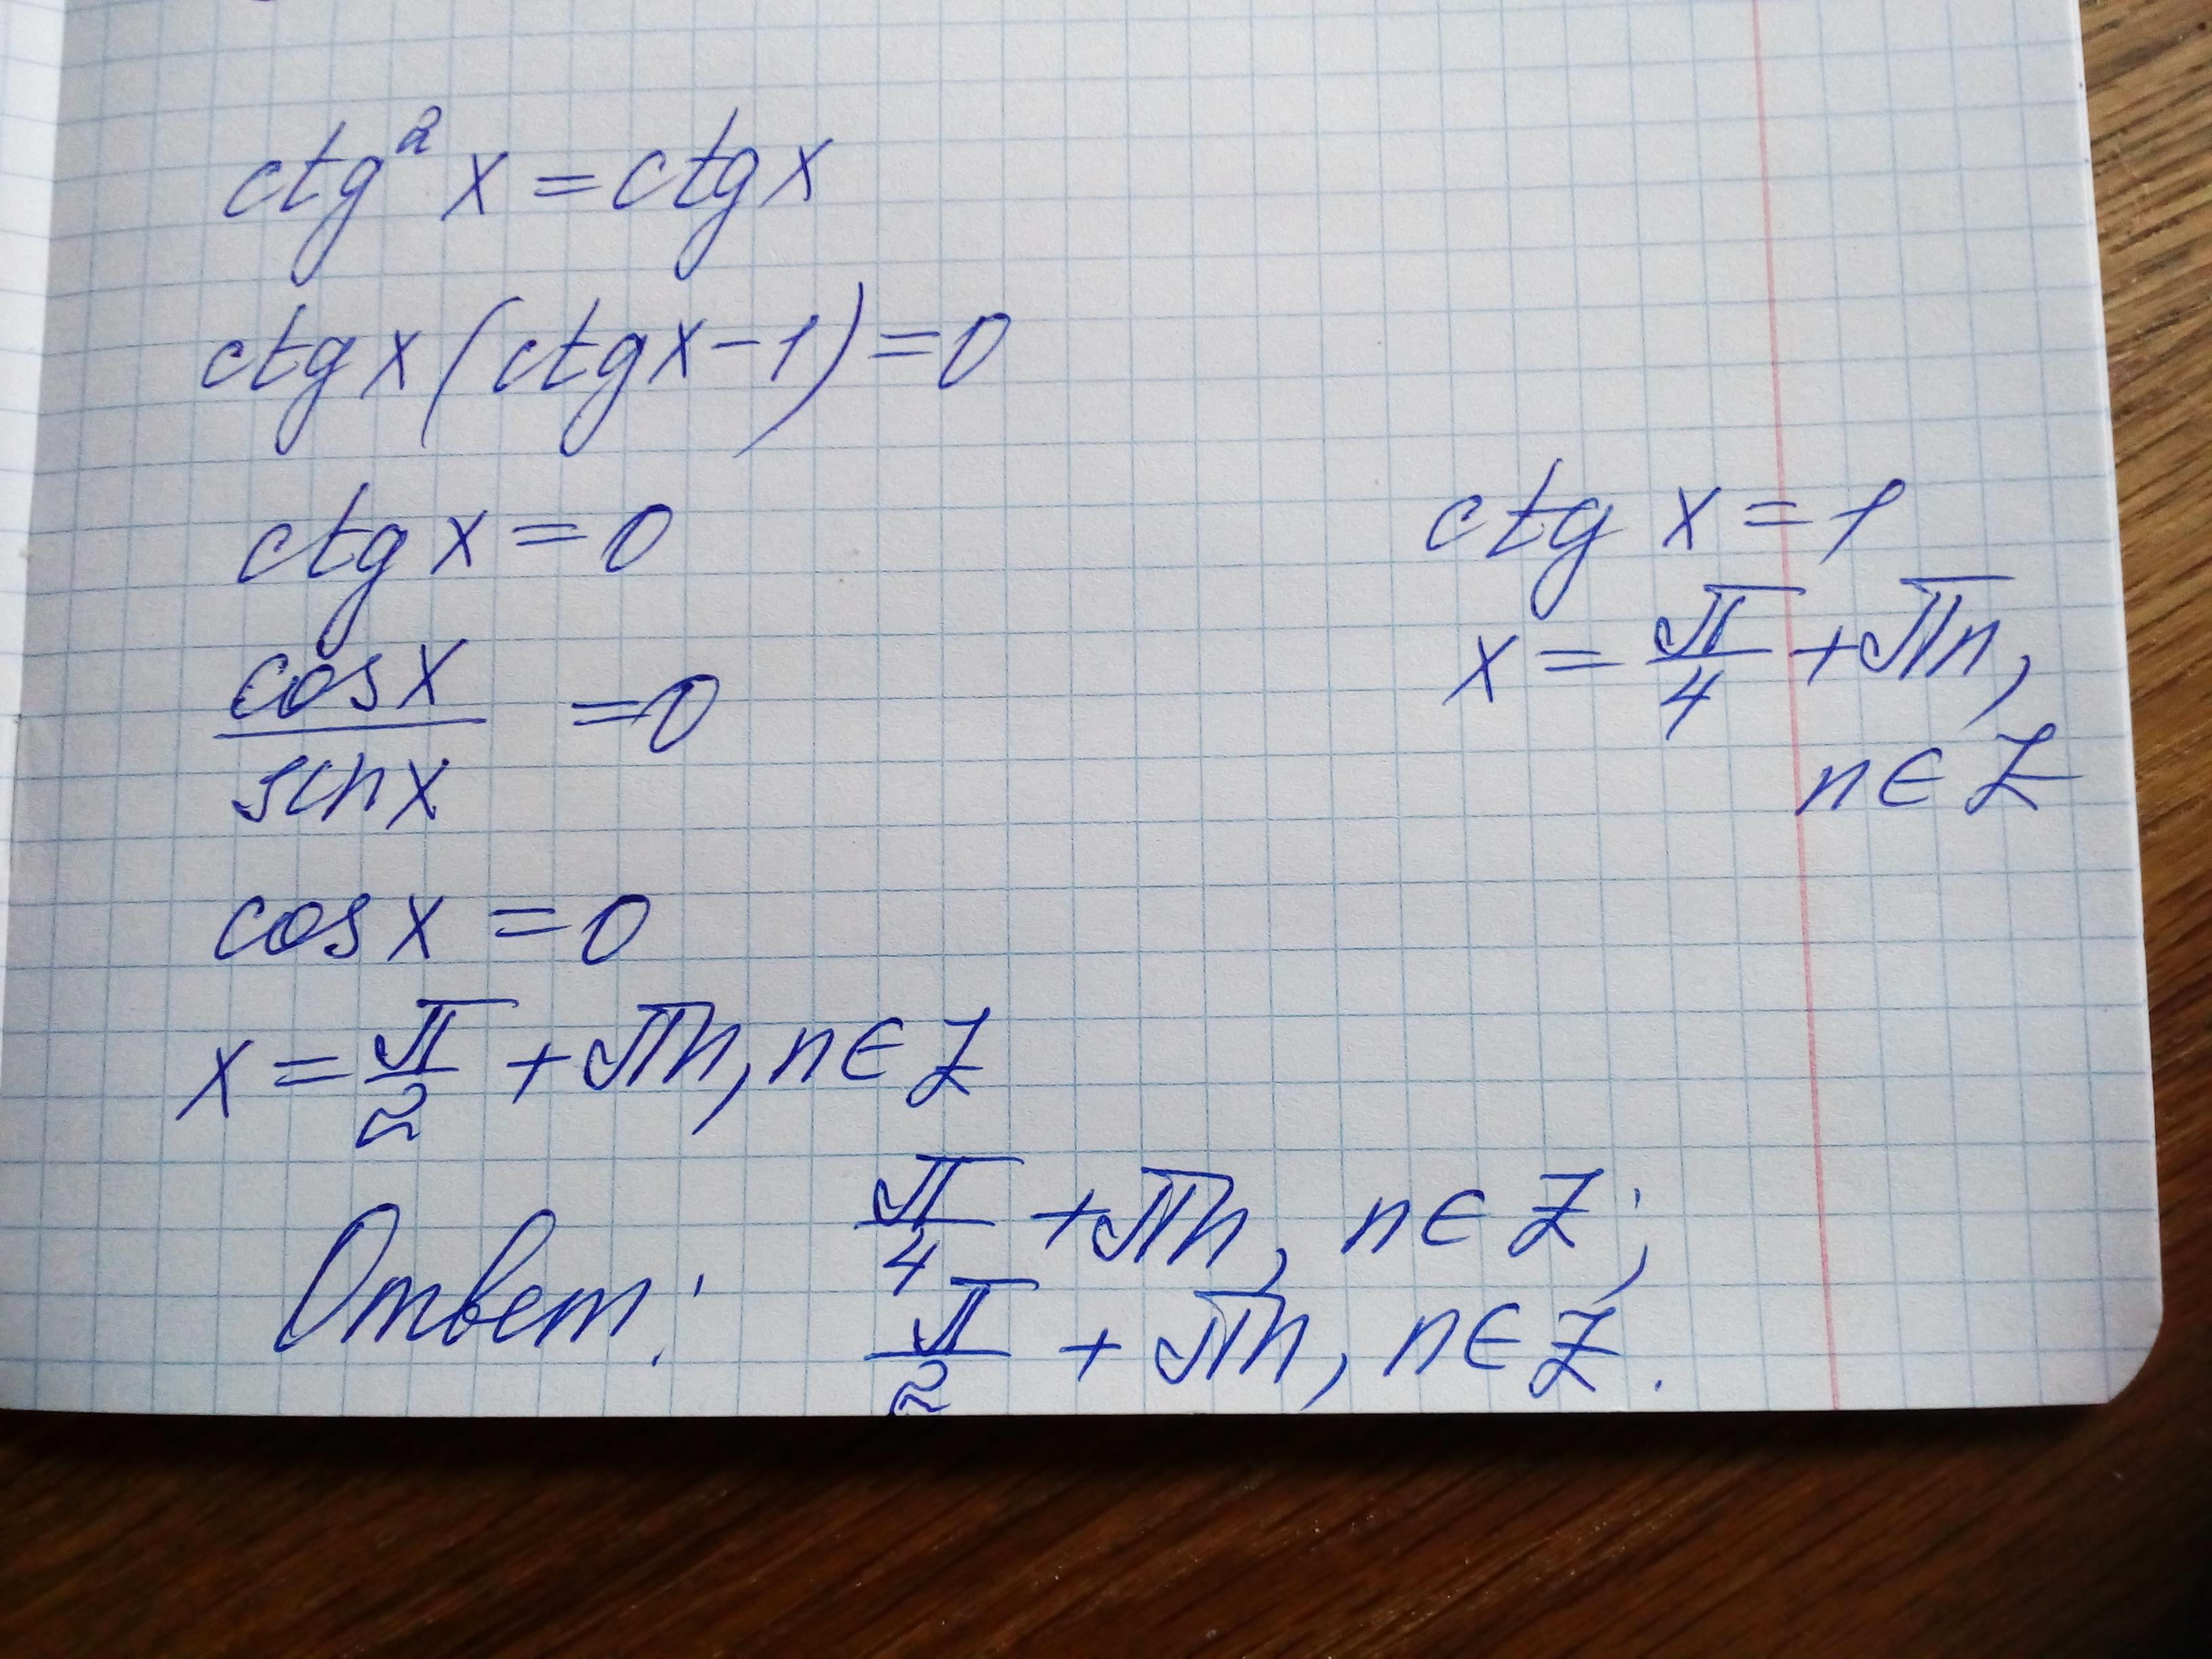 ctg² x = ctg x
ctg x (ctg x − 1) = 0
ctg x = 0
cos x / sin x = 0
cos x = 0
x = π/2 + πn, n ∈ Z
ctg x = 1
x = π/4 + πn,
n ∈ Z
Ответ: π/4 + πn, n ∈ Z;
π/2 + πn, n ∈ Z.